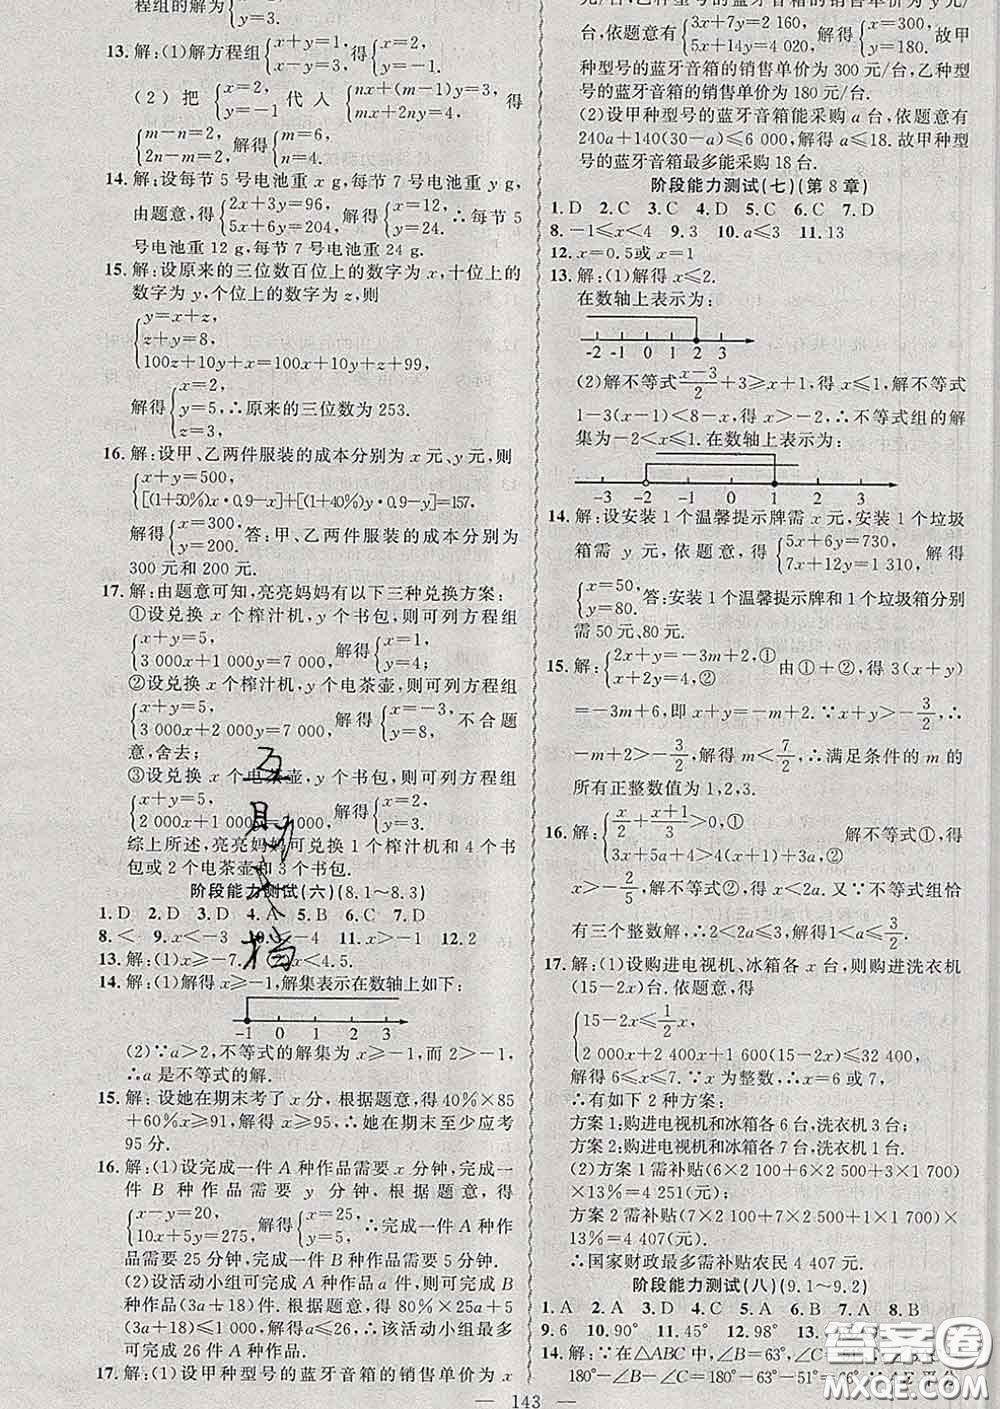 程组的解为{
y=3.
13. 解:(1)解方程组{x+y=1, x-y=3, 得{x=2, y=-1.
(2)把{x=2, y=-1 代入{nx+(m-1)y=3, mx+2ny=4, 得
{m-n=2, 2n-m=2, 解得{m=6, n=4.
14. 解:设每节 5 号电池重 x g,每节 7 号电池重 y g,
由题意,得{2x+3y=96, 5x+6y=204, 解得{x=12, y=24. ∴每节 5
号电池重 12 g,每节 7 号电池重 24 g.
15. 解:设原来的三位数百位上的数字为 x,十位上的
数字为 y,个位上的数字为 z,则
{y=x+z,
z+y=8,
100z+10y+x=100x+10y+z+99,
解得{x=2, y=5, z=3, ∴原来的三位数为 253.
16. 解:设甲、乙两件服装的成本分别为 x 元、y 元,则
{x+y=500,
[(1+50%)x·0.9-x]+[(1+40%)y·0.9-y]=157,
解得{x=300, y=200. 答:甲、乙两件服装的成本分别为
300 元和 200 元.
17. 解:由题意可知,亮亮妈妈有以下三种兑换方案:
①设兑换 x 个榨汁机,y 个书包,则可列方程组
{x+y=5, 3 000x+1 000y=7 000, 解得{x=1, y=4;
②设兑换 x 个榨汁机,y 个电茶壶,则可列方程组
{x+y=5, 3 000x+2 000y=7 000, 解得{x=-3, y=8, 不合题
意,舍去;
③设兑换 x 个电茶壶,y 个书包,则可列方程组
{x+y=5, 2 000x+1 000y=7 000, 解得{x=2, y=3.
综上所述,亮亮妈妈可兑换 1 个榨汁机和 4 个书
包或 2 个电茶壶和 3 个书包.
阶段能力测试(六)(8.1~8.3)
1. D 2. D 3. D 4. A 5. B 6. C 7. D
8. < 9. x<-3 -4 11. x>-1 12. 2
13. 解:(1)x≥-7. x<4.5.
14. 解:(1)解得 x≥-1,解集表示在数轴上如下:
-1 0 1 2 3
(2)∵a>2,不等式的解集为 x≥-1,而 2>-1,
∴a 是不等式的解.
15. 解:设她在期末考了 x 分,根据题意,得 40%×85
+60%x≥91,解得 x≥95. ∴她在期末至少应考
95 分.
16. 解:(1)设完成一件 A 种作品需要 x 分钟,完成一
件 B 种作品需要 y 分钟,根据题意,得
{x-y=20, 10x+5y=275, 解得{x=25, y=5, ∴完成一件 A 种作
品需要 25 分钟,完成一件 B 种作品需要 5 分钟.
(2)设活动小组可完成 A 种作品 a 件,则可完成 B
种作品(3a+18)件,根据题意,得 80%×25a+5
(3a+18)≤1 000,解得 a≤26,∴该活动小组最多
可完成 26 件 A 种作品.
17. 解:(1)设甲种型号的蓝牙音箱的销售单价为 x
元/台,乙种型号的蓝牙音箱的销售单价为 y 元/
台,依题意有{3x+7y=2 160, 5x+14y=4 020, 解得{x=300, y=180. 故甲
种型号的蓝牙音箱的销售单价为 300 元/台,乙种型
号的蓝牙音箱的销售单价为 180 元/台.
(2)设甲种型号的蓝牙音箱能采购 a 台,依题意有
240a+140(30-a)≤6 000,解得 a≤18. 故甲种型
号的蓝牙音箱最多能采购 18 台.
阶段能力测试(七)(第 8 章)
1. D 2. C 3. C 4. D 5. C 6. C 7. D
8. -1≤x<4 9. 3 10. a≤3 11. 13
12. x=0.5或 x=1
13. 解:(1)解得 x≤2.
在数轴上表示为:
-2 -1 0 1 2 3
(2)解不等式 (x-3)/2+3≥x+1,得 x≤1,解不等式
1-3(x-1)<8-x,得 x>-2,∴不等式组的解
集为-2<x≤1. 在数轴上表示为:
-3 -2 -1 0 1 2 3
14. 解:设安装 1 个温馨提示牌需 x 元,安装 1 个垃圾
箱需 y 元,依题意,得{5x+6y=730, 7x+12y=1 310, 解得
{x=50, y=80. 答:安装 1 个温馨提示牌和 1 个垃圾箱分别
需 50 元、80 元.
15. 解:{2x+y=-3m+2,① x+2y=4,② 由①+②,得 3(x+y)
=-3m+6,即 x+y=-m+2,∵x+y>-3/2,∴
-m+2>-3/2,解得 m<7/2,∴满足条件的 m 的
所有正整数值为 1,2,3.
16. 解:{x/2+(x+1)/3>0,① 3x+5a+4>4(x+1)+3a,② 解不等式①,得
x>-2/5,解不等式②,得 x<2a. 又∵不等式组恰
有三个整数解,∴2<2a≤3,解得 1<a≤3/2.
17. 解:(1)设购进电视机、冰箱各 x 台,则购进洗衣机
(15-2x)台. 依题意,得
{15-2x≤1/2x,
2 000x+2 400x+1 600(15-2x)≤32 400,
解得 6≤x≤7. ∵x 为整数,∴x=6或7.
∴有如下 2 种方案:
方案 1:购进电视机和冰箱各 6 台,洗衣机 3 台;
方案 2:购进电视机和冰箱各 7 台,洗衣机 1 台.
(2)方案 1 需补贴(6×2 100+6×2 500+3×1 700)
×13%=4 251(元);
方案 2 需补贴(7×2 100+7×2 500+1×1 700)
×13%=4 407(元).
∴国家财政最多需补贴农民 4 407 元.
阶段能力测试(八)(9.1~9.2)
1. A 2. A 3. C 4. D 5. A 6. A 7. A 8. B
9. 6 10. 90° 11. 45° 12. 98° 13.
14. 解:∵在△ABC 中,∠B=63°,∠C=51°,∴∠BAC=
180°-∠B-∠C=180°-63°-51°=66°. ∵AE 平分
— 143 —
答案圈
MXQE.COM